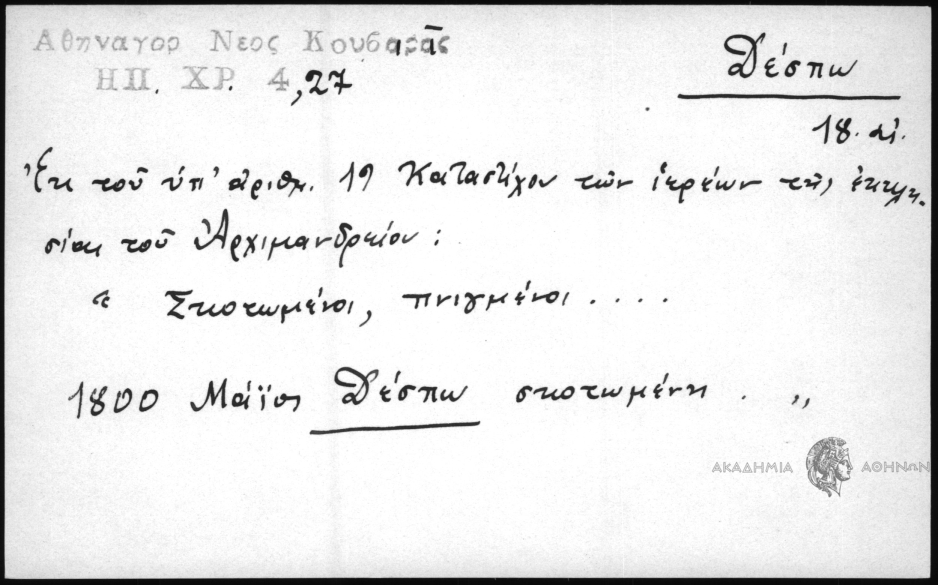 Αθηναγορ Νεος Κουβαρᾶς
ΗΠ. ΧΡ. 4,27
Δέσπω
18. αἰ.
Ἐκ τοῦ ὑπ' ἀριθμ. 19 Καταστίχου τῶν ἱερέων τῆς ἐκκλη-
σίας τοῦ Ἀρχιμανδρείου:
“ Σκοτωμένοι, πνιγμένοι ....
1800 Μάϊος Δέσπω σκοτωμένη . ,,
ΑΚΑΔΗΜΙΑ ΑΘΗΝΩΝ